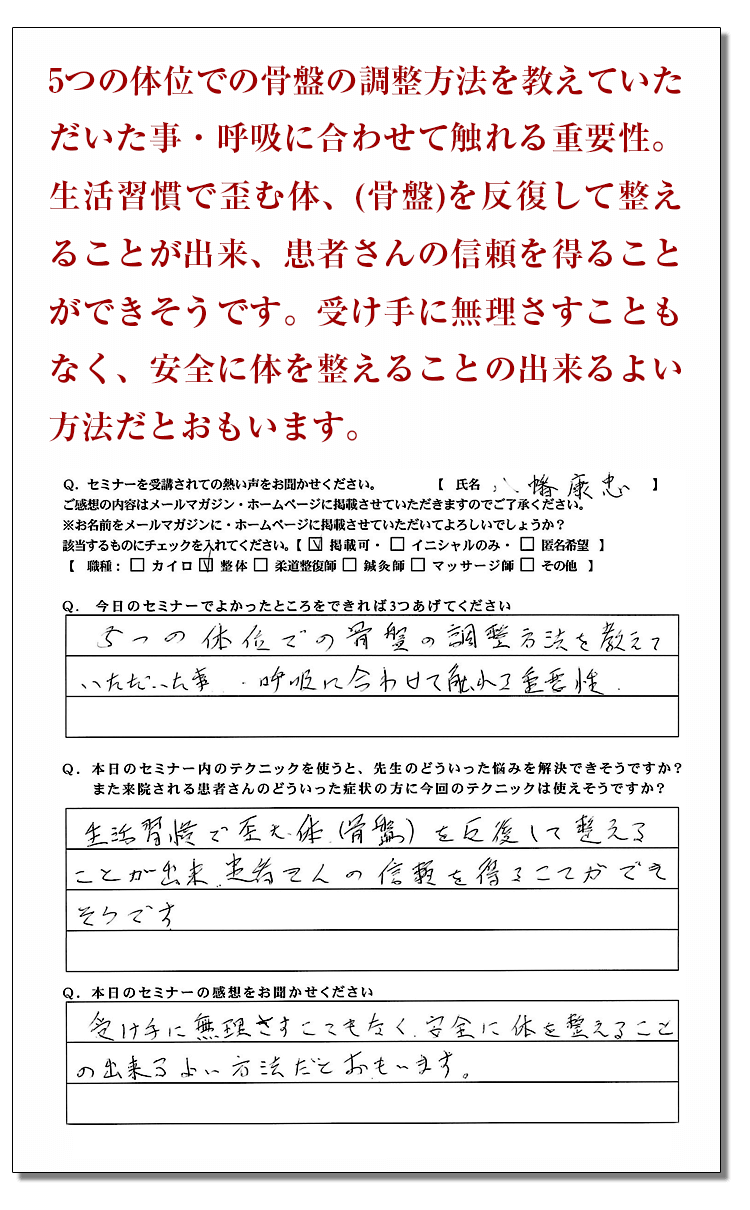 5つの体位での骨盤の調整方法を教えていた
だいた事・呼吸に合わせて触れる重要性。
生活習慣で歪む体、(骨盤)を反復して整え
ることが出来、患者さんの信頼を得ること
ができそうです。受け手に無理さすことも
なく、安全に体を整えることの出来るよい
方法だとおもいます。
Q. セミナーを受講されての熱い声をお聞かせください。 【 氏名 八幡康忠 】
ご感想の内容はメールマガジン・ホームページに掲載させていただきますのでご了承ください。
※お名前をメールマガジンに・ホームページに掲載させていただいてよろしいでしょうか？
該当するものにチェックを入れてください。【 ☑ 掲載可・ □ イニシャルのみ・ □ 匿名希望 】
【 職種： □ カイロ ☑ 整体 □ 柔道整復師 □ 鍼灸師 □ マッサージ師 □ その他 】
Q. 今日のセミナーでよかったところをできれば3つあげてください
5つの体位での骨盤の調整方法を教えて
いただいた事 ・呼吸に合わせて触れる重要性.
Q. 本日のセミナー内のテクニックを使うと、先生のどういった悩みを解決できそうですか？
また来院される患者さんのどういった症状の方に今回のテクニックは使えそうですか？
生活習慣で歪む体、(骨盤)を反復して整える
ことが出来、患者さんの信頼を得ることができ
そうです
Q. 本日のセミナーの感想をお聞かせください
受け手に無理さすこともなく、安全に体を整えること
の出来るよい方法だとおもいます。